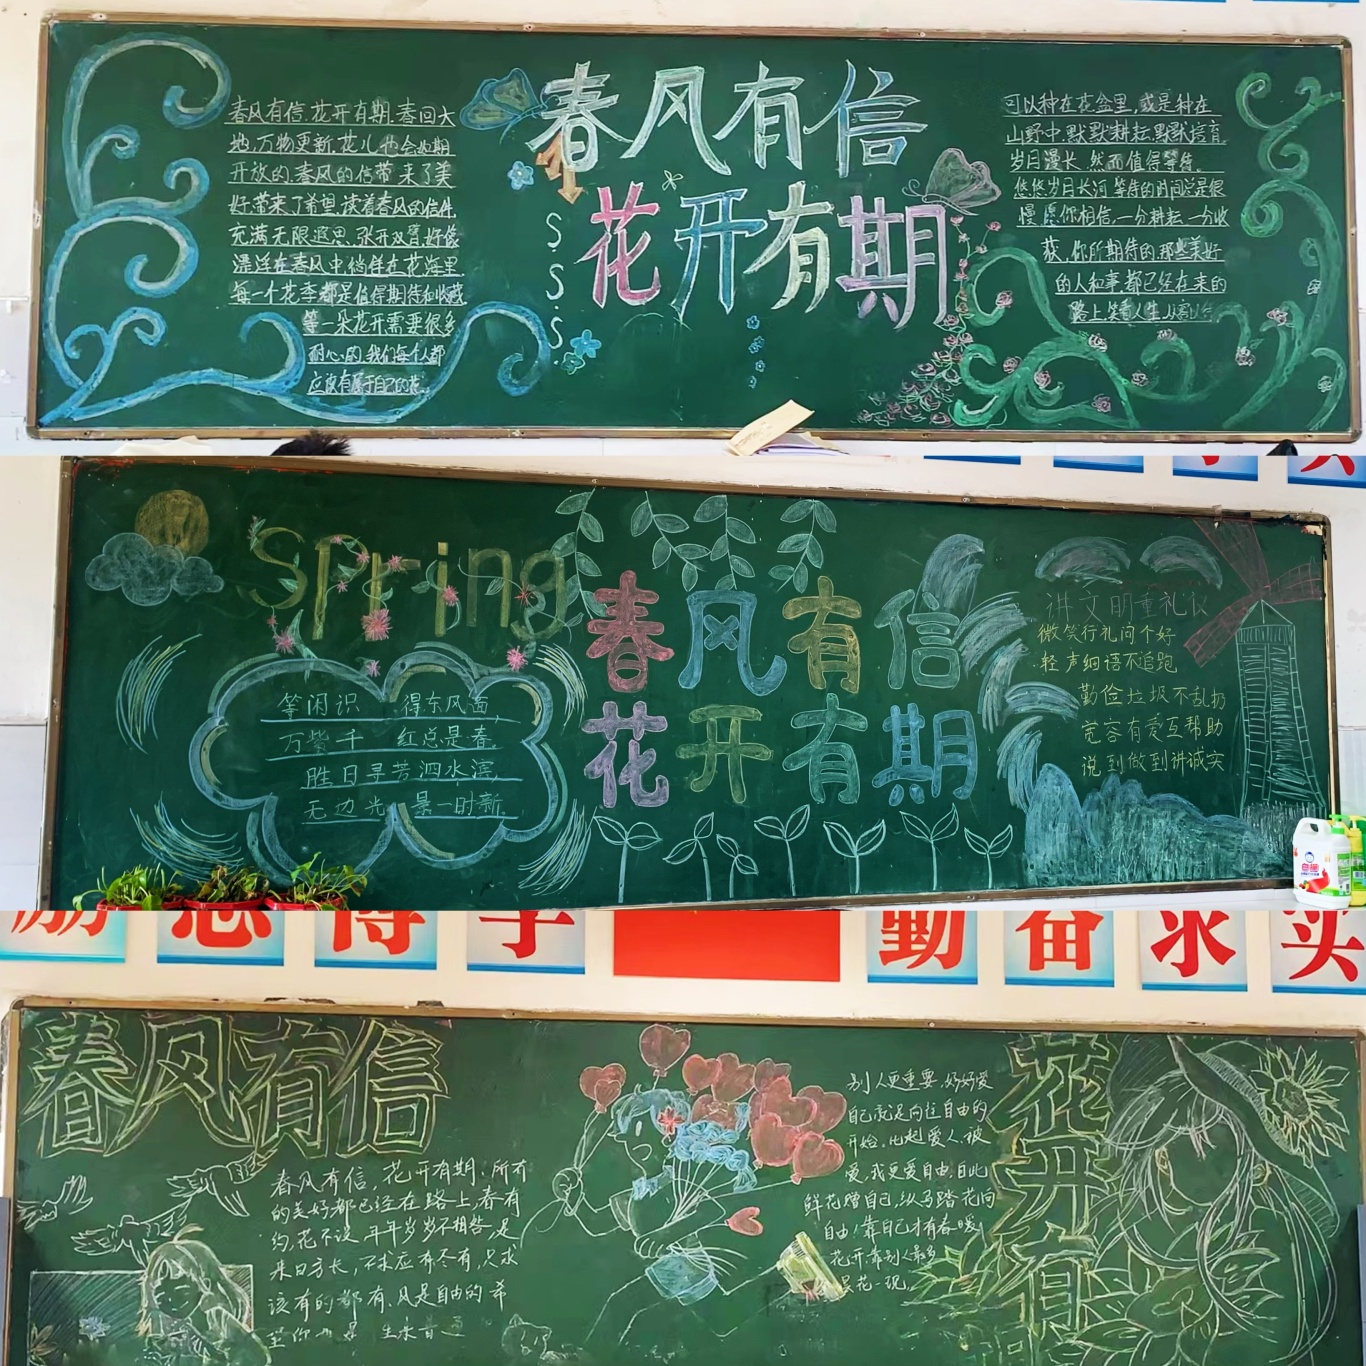 春风有信
花开有期
春风有信,花开有期,春回大
地,万物更新,花儿也会如期
开放的,春风的信带来了美
好,带来了希望,读着春风的信件,
充满无限遐思,张开双臂,好像
漂浮在春风中,徜徉在花海里.
每一个花季都是值得期待和收藏
等一朵花开需要很多
耐心的,我们每个人都
应该有属于自己的花.
可以种在花盆里,或是种在
山野中.默默耕耘.默默培育.
岁月漫长,然而值得等待.
悠悠岁月长河,等待的时间总是很
慢,愿你相信,一分耕耘,一分收
获,你所期待的,那些美好
的人和事,都已经在来的
路上,笑看人生,从容以待
Spring
春风有信
花开有期
等闲识 得东风面,
万紫千 红总是春,
胜日寻芳泗水滨,
无边光 景一时新,
讲文明重礼仪
微笑行礼问个好
轻声细语不追跑
勤俭垃圾不乱扔
宽容有爱互帮助
说到做到讲诚实
励志博学
勤奋求实
春风有信
花开有
春风有信,花开有期,所有
的美好都已经在路上,春有
约,花不误,年年岁岁不相负,是
来日方长,不求应有尽有,只求
该有的都有,风是自由的,希
望你也是
别人更重要,好好爱
自己就是向往自由的
开始,比起爱人,被
爱,我更爱自由,自此
鲜花赠自己,纵马踏花向
自由!靠自己才有春暖
花开,靠别人最多
昙花一现.